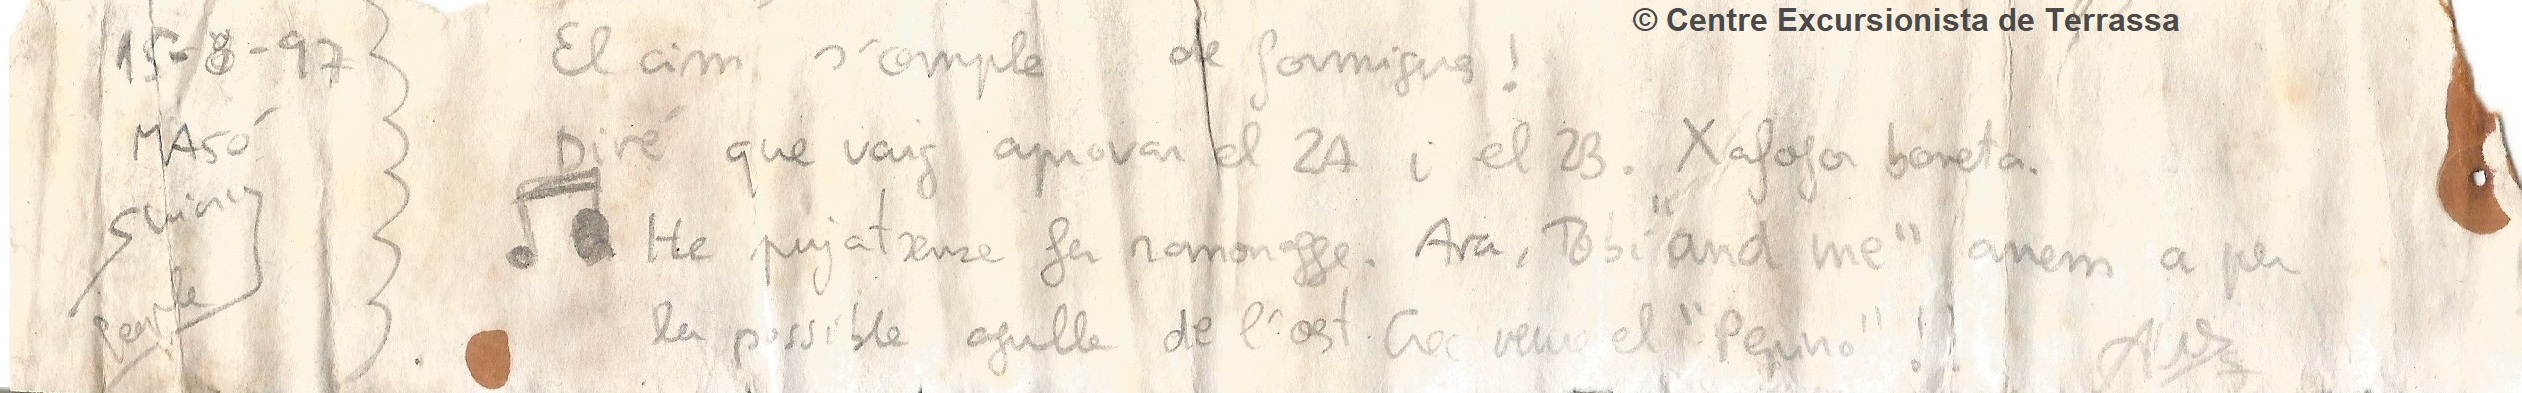 © Centre Excursionista de Terrassa
15-8-97
MAsó
people
El cim s'omple de formigues!
Diré que vaig aprovar el 2A i el 2B. Xafogor boneta.
He pujat sense fer ramonage. Ara, Tobi "and me" anem a per
la possible agulla de l'est. Crec veure el "Pepino"!!